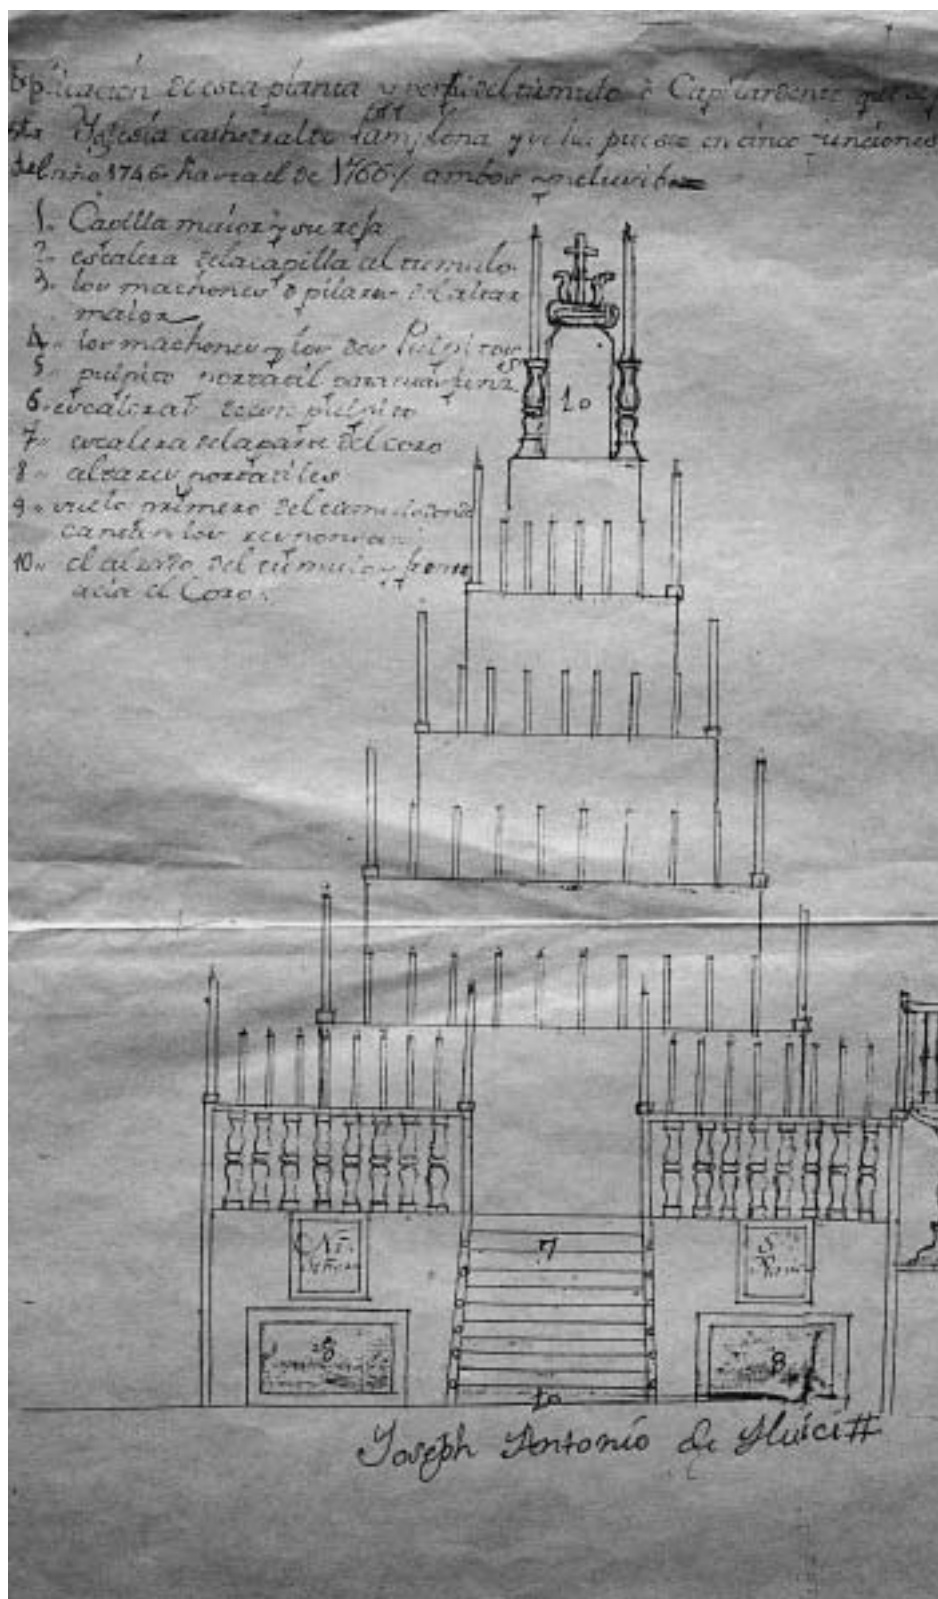 Explicacion de esta planta y perfil del tumulo o Capilardente que
sta Yglesia cathedral de Pamplona que ha puesto en cinco funciones
del año 1746 hasta el de 1766 ambos inclusibe
1. Capilla maior y su reja
2. escalera de la capilla al tumulo
3. los machones o pilares del altar
maior
4. los machones y los dos Pulpitos
5. pulpito portatil
6. escalera de este pulpito
7. escalera de la parte del coro
8. altares portatiles
9. primero del tumulo donde
cantan los responsos
10. el alzado del tumulo y frente
acia el Coro.
10
7
Nr̃a.
Señora
S.
8
8
10
Joseph Antonio de Huici